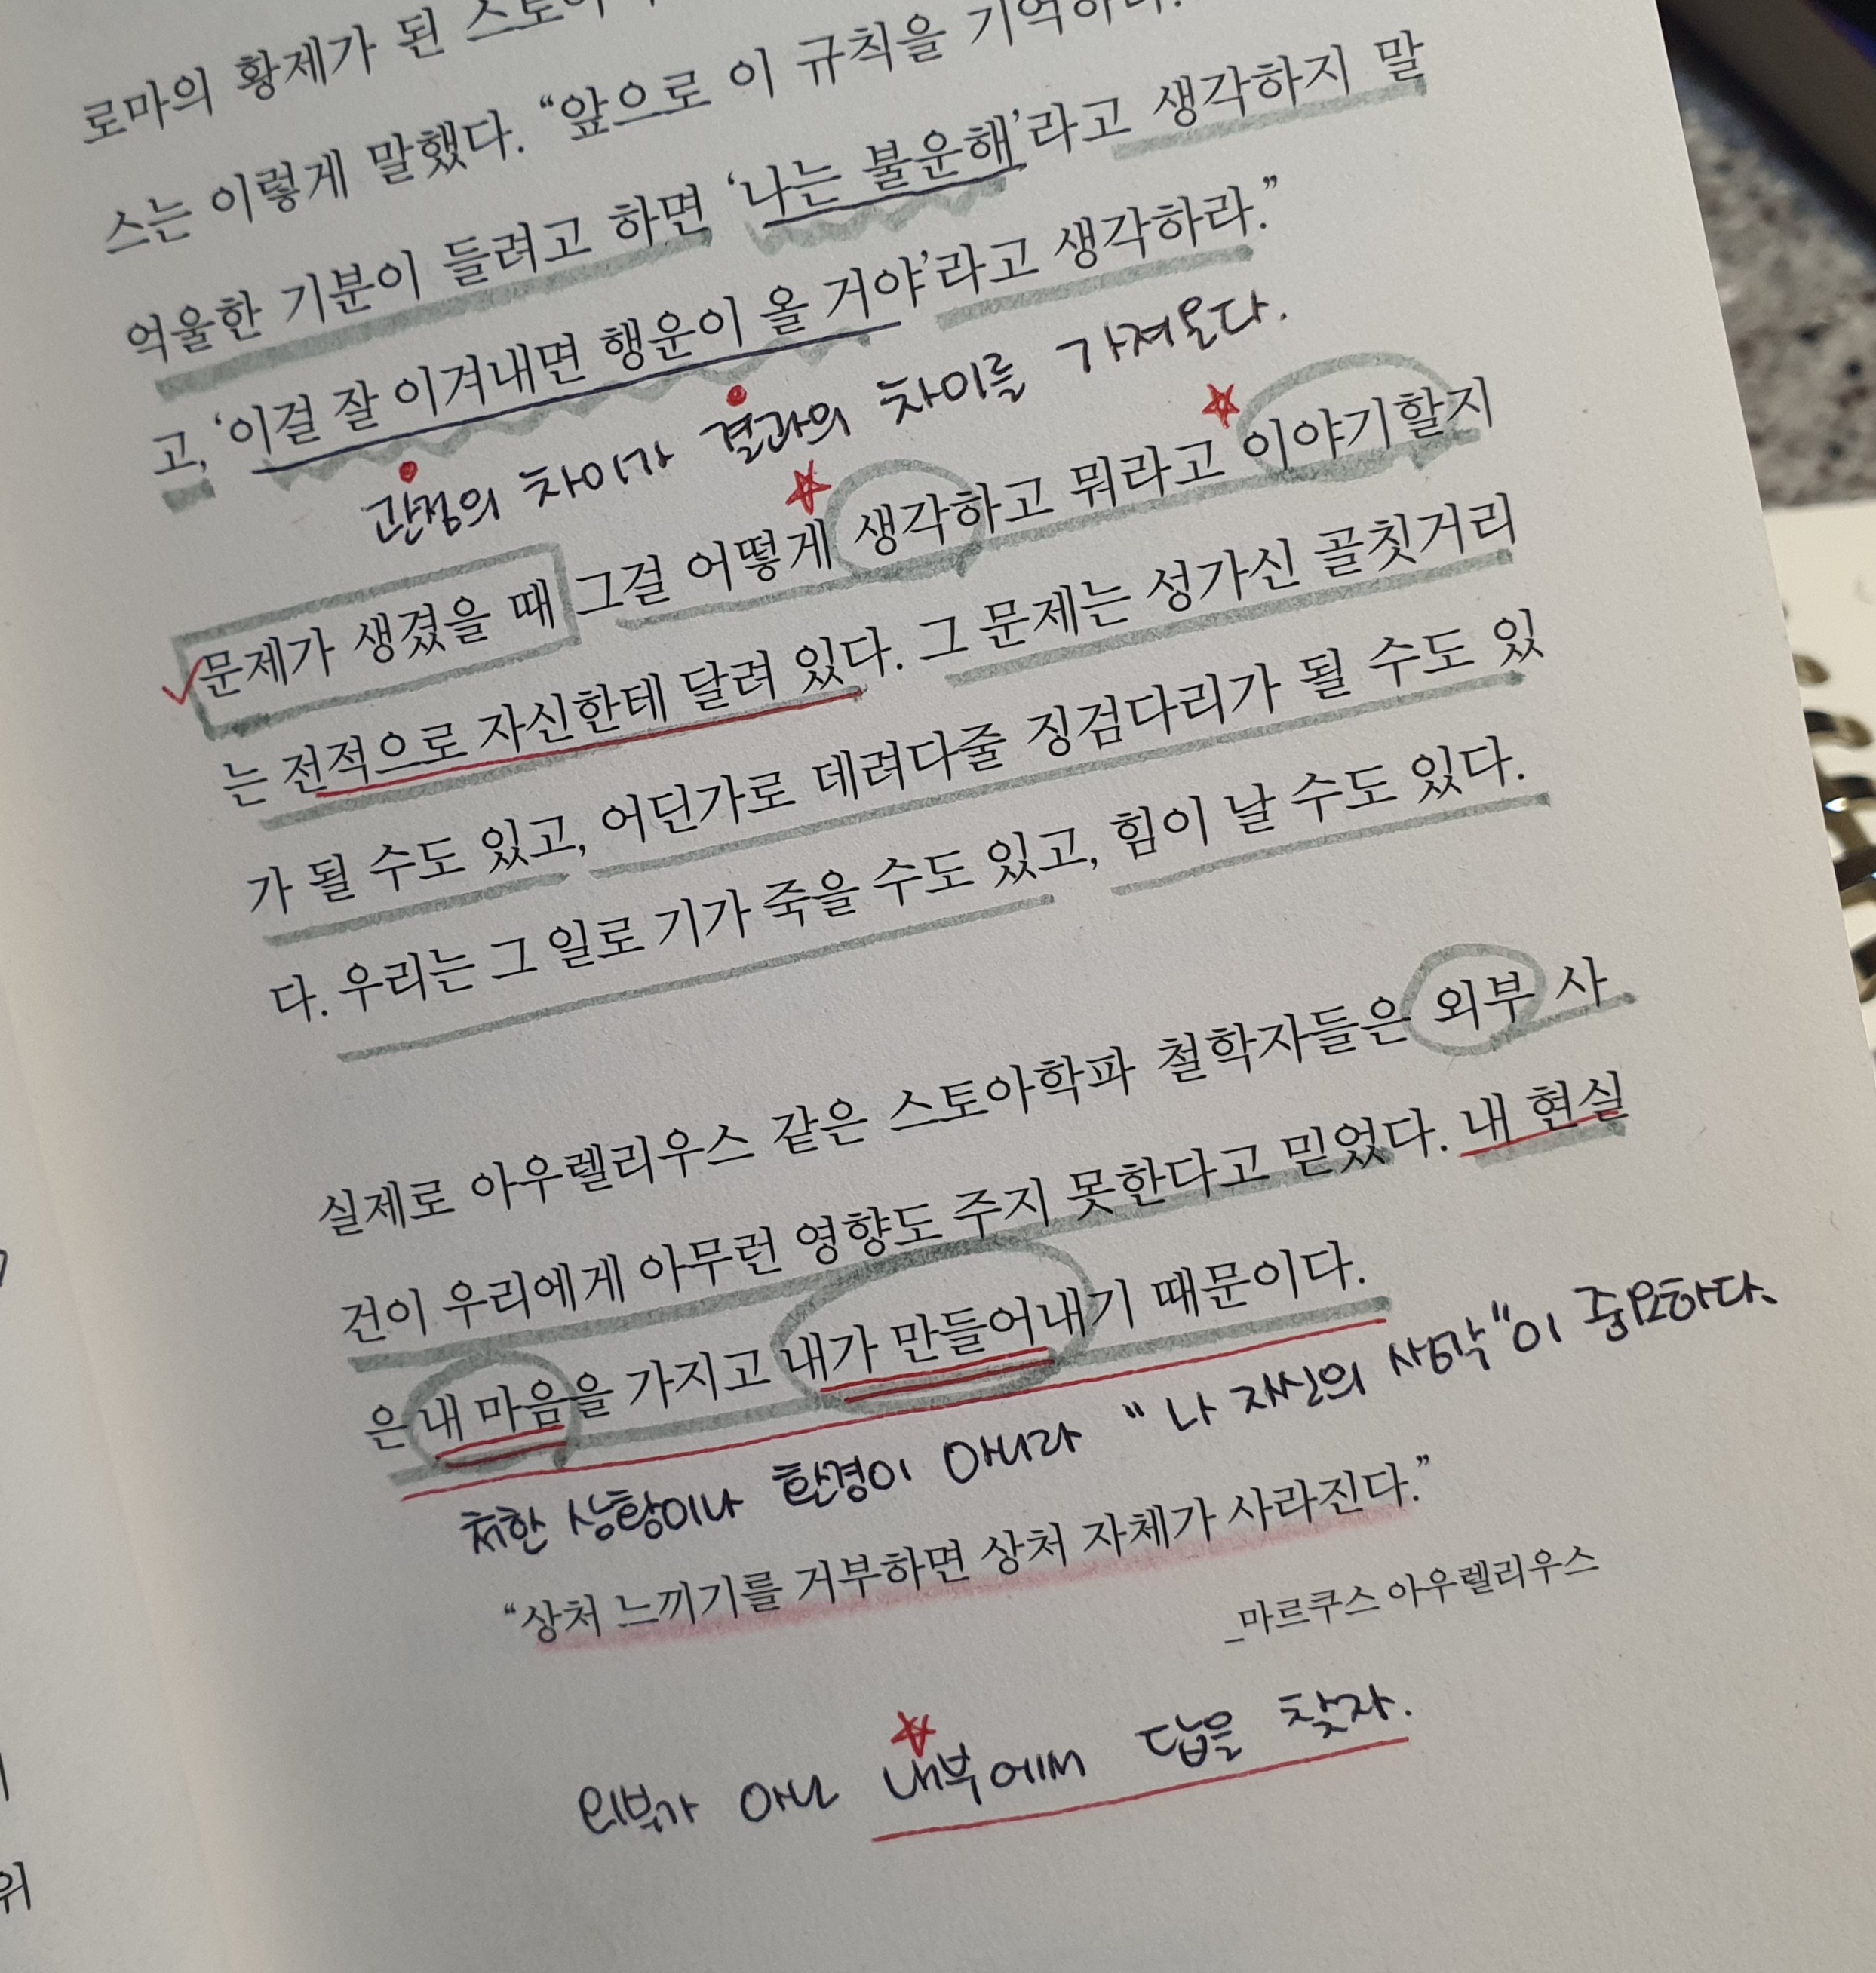 로마의 황제가 된 스토아
스는 이렇게 말했다. “앞으로 이 규칙을 기억하라.
억울한 기분이 들려고 하면 ‘나는 불운해’라고 생각하지 말
고, ‘이걸 잘 이겨내면 행운이 올 거야’라고 생각하라.”
관점의 차이가 결과의 차이를 가져온다.
문제가 생겼을 때 그걸 어떻게 생각하고 뭐라고 이야기할지
는 전적으로 자신한테 달려 있다. 그 문제는 성가신 골칫거리
가 될 수도 있고, 어딘가로 데려다줄 징검다리가 될 수도 있
다. 우리는 그 일로 기가 죽을 수도 있고, 힘이 날 수도 있다.
실제로 아우렐리우스 같은 스토아학파 철학자들은 외부 사
건이 우리에게 아무런 영향도 주지 못한다고 믿었다. 내 현실
은 내 마음을 가지고 내가 만들어내기 때문이다.
처한 상황이나 환경이 아니라 “나 자신의 생각”이 중요하다.
“상처 느끼기를 거부하면 상처 자체가 사라진다.”
_마르쿠스 아우렐리우스
외부가 아닌 내부에서 답을 찾자.
위